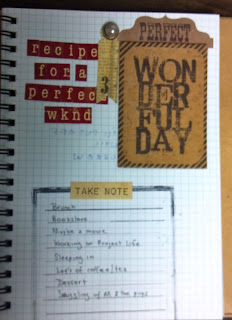 recipe
for a
perfect
wknd
3
PERFECT
WON
DER
FUL
DAY
TAKE NOTE
Brunch
Bookstore
Maybe a movie
Working on Project Life
Sleeping in
Lots of coffee/tea
Dessert
Snuggling w/ M & the pugs